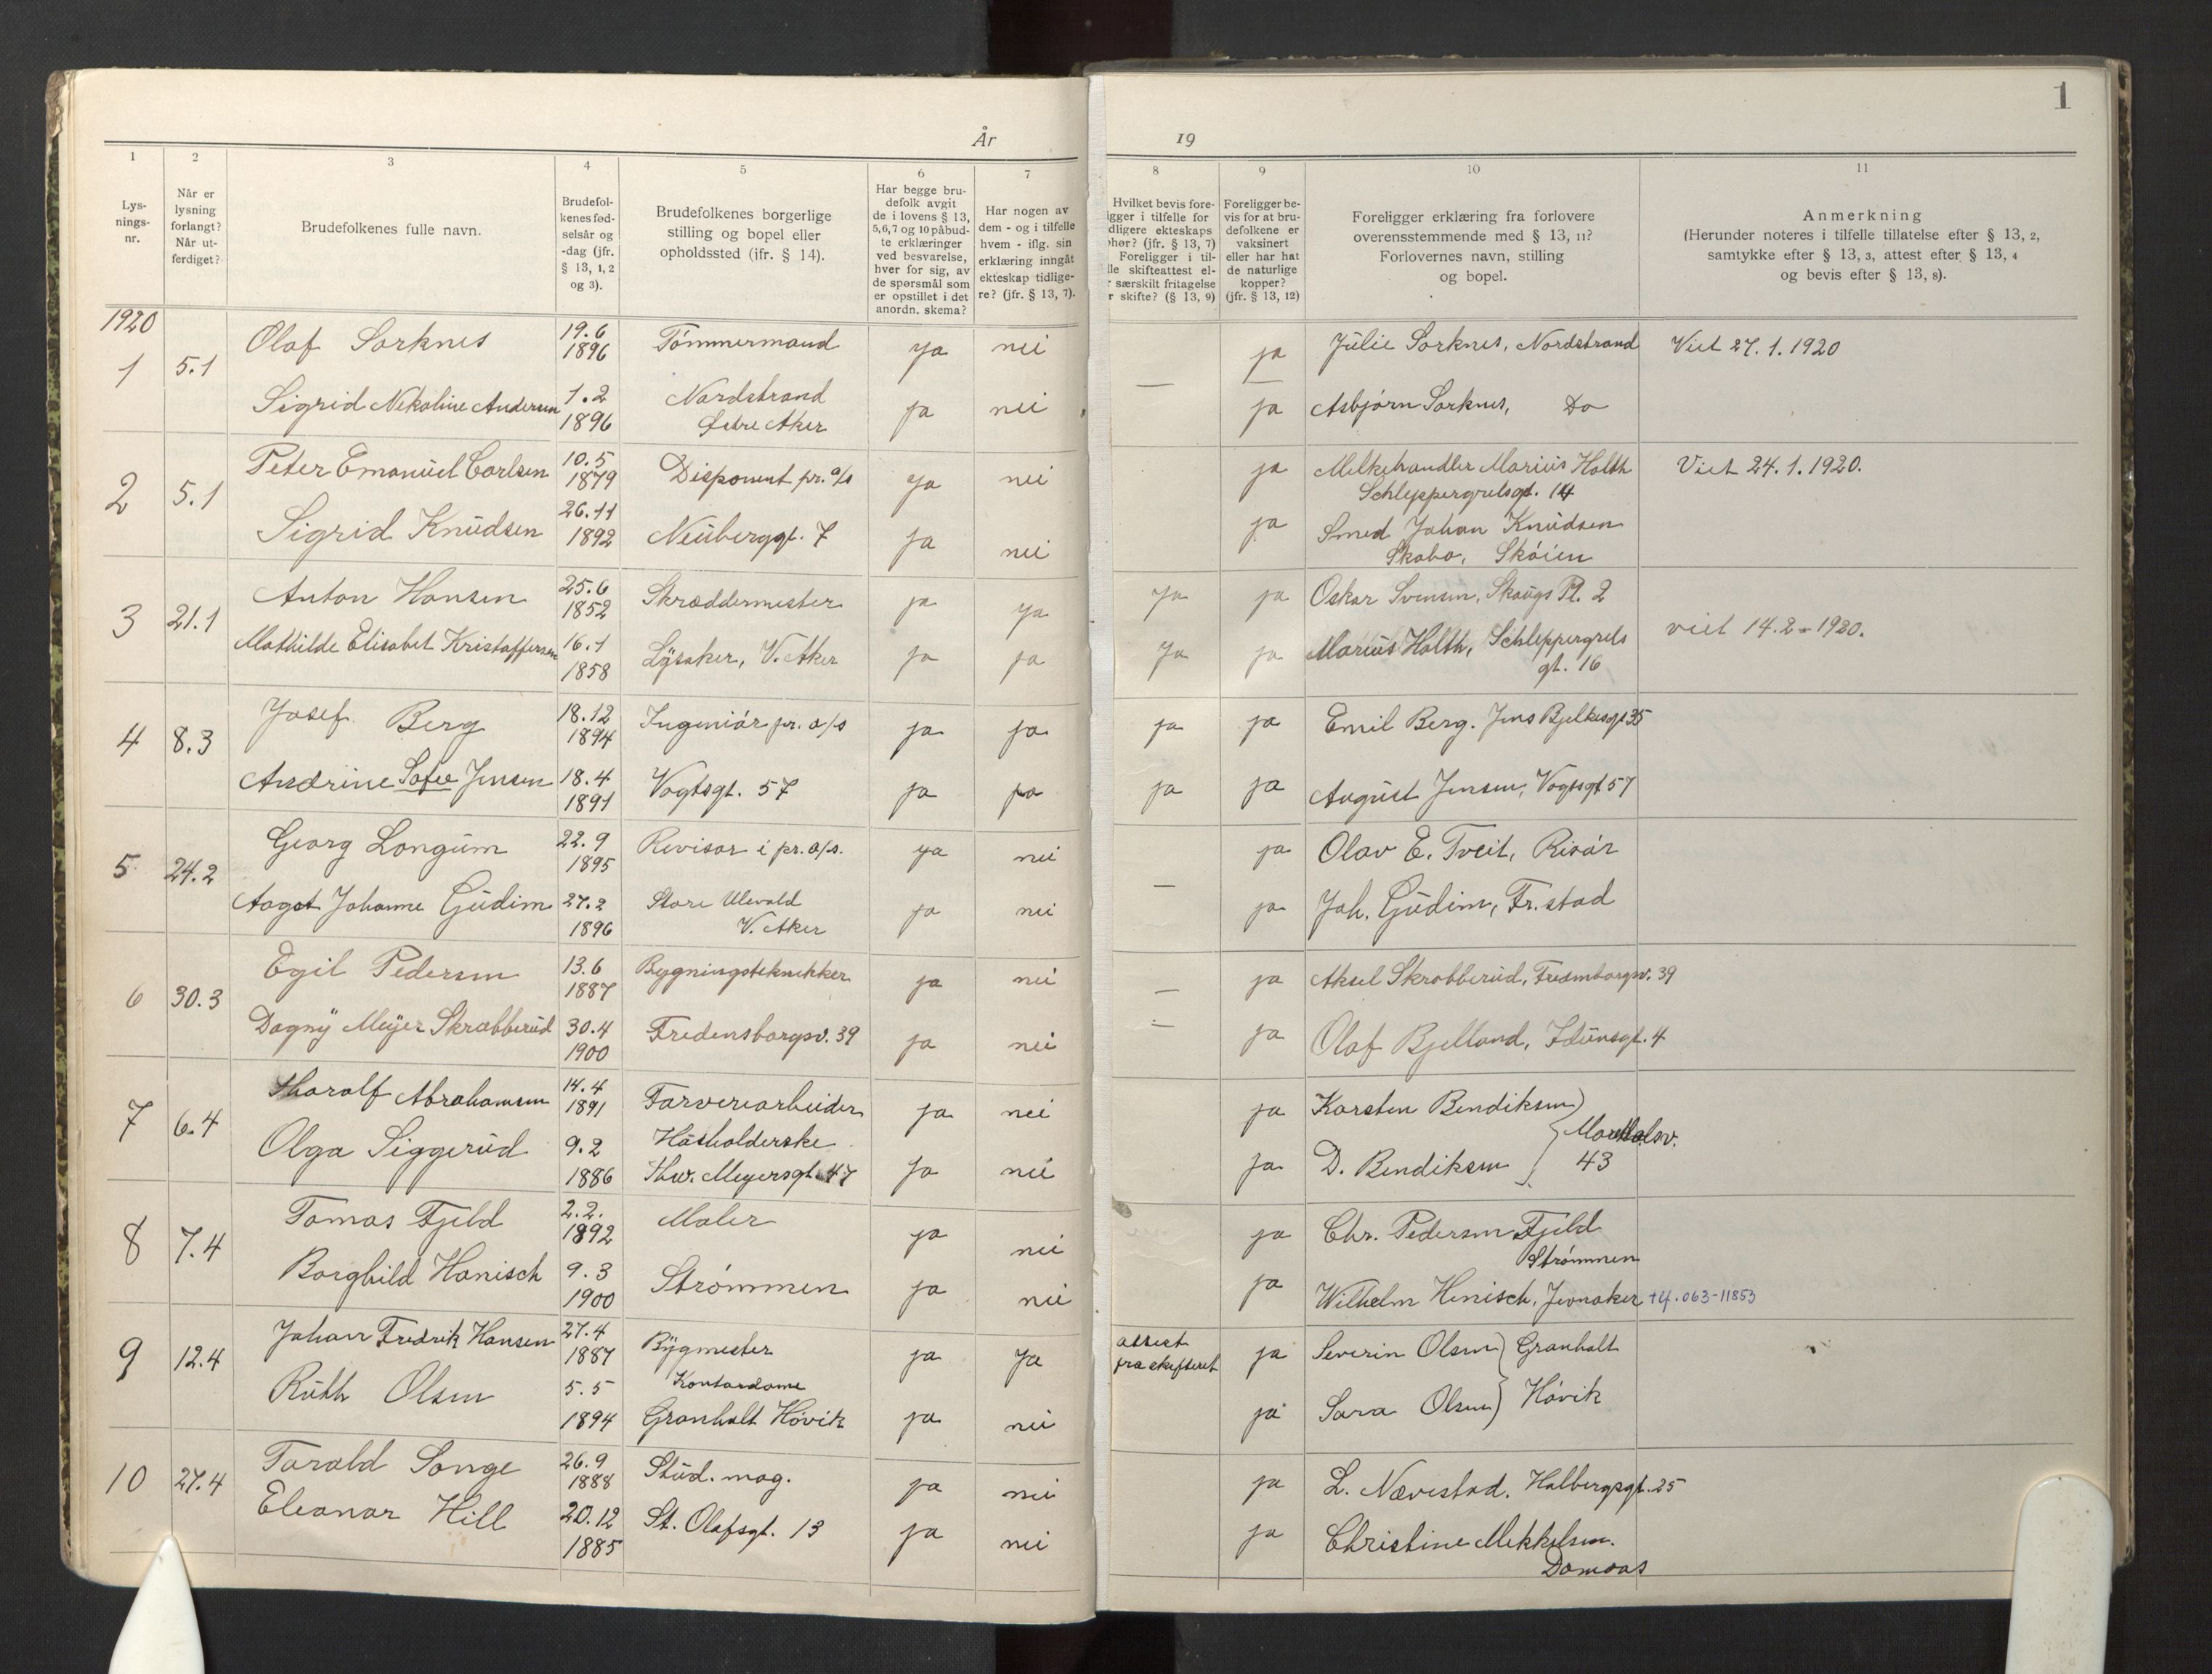 1
År
19
1
2
3
4
5
6
7
8
9
10
11
Lys-
nings-
nr.
Når er
lysning
forlangt?
Når ut-
ferdiget?
Brudefolkenes fulle navn.
Brudefol-
kenes fød-
selsår og
-dag (jfr.
§ 13, 1, 2
og 3).
Brudefolkenes borgerlige
stilling og bopel eller
opholdssted (ifr. § 14).
Har begge bru-
defolk avgit
de i lovens § 13,
5,6,7 og 10 påbud-
te erklæringer
ved besvarelse,
hver for sig, av
de spørsmål som
er opstillet i det
anordn. skema?
Har nogen av
dem - og i tilfelle
hvem - iflg. sin
erklæring inngåt
ekteskap tidlige-
re? (jfr. § 13, 7).
Hvilket bevis fore-
igger i tilfelle for
dligere ekteskaps
phør? (jfr. § 13, 7)
Foreligger i til-
lle skifteattest el-
r særskilt fritagelse
r skifte? (§ 13, 9)
Foreligger be-
vis for at bru-
defolkene er
vaksinert
eller har hat
de naturlige
kopper?
(jfr. § 13, 12)
Foreligger erklæring fra forlovere
overensstemmende med § 13, 11?
Forlovernes navn, stilling
og bopel.
Anmerkning
(Herunder noteres i tilfelle tillatelse efter § 13, 2,
samtykke efter § 13, 3, attest efter § 13, 4
og bevis efter § 13, 8).
1920
1 5.1 Olaf Sorknes 19.6 1896 Tømmermand ja nei ja Julie Sorknes, Nordstrand Viet 27.1.1920
Sigrid Nekoline Andersen 1.2 1896 Nordstrand Østre Aker ja nei — ja Asbjørn Sorknes, Do
2 5.1 Peter Emanuel Carlsen 10.5 1879 Disponent pr. a/s ja nei ja Melkehandler Marius Holth Schleppegrelsgt. 14 Viet 24.1.1920.
Sigrid Knudsen 26.11 1892 Neuberggt. 7 ja nei ja Smed Johan Knudsen Skabo, Skøien
3 21.1 Anton Hansen 25.6 1852 Skræddermester ja ja ja ja Oskar Svensen, Skougs Pl. 2 viet 14.2-1920.
Mathilde Elisabet Kristoffersen 16.1 1858 Lysaker, V. Aker ja ja ja ja Marius Holth, Schleppegrels gt. 16
4 8.3 Josef Berg 18.12 1894 Ingeniør pr. a/s ja ja ja ja Emil Berg. Jens Bjelkesgt 35
Andrine Sofie Jensen 18.4 1891 Vogtsgt. 57 ja ja ja ja August Jensen, Vogtsgt 57
5 24.2 Georg Longum 22.9 1895 Revisor i pr. a/s. ja nei ja Olav E. Tveit, Risør
Aagot Johanne Gudim 27.2 1896 Store Ulevold V. Aker ja nei — ja Joh. Gudim, Fr.stad
6 30.3 Egil Pedersen 13.6 1887 Bygningstekniker ja nei — ja Aksel Skrobberud, 39
Dagny Meyer Skrobberud 30.4 1900 Fredensborgsv. 39 ja nei — ja Olaf Bjelland, Idunsgt. 4
7 6.4 Tharalf Abrahamsen 14.4 1891 Farveriarbeider ja nei ja Karsten Bendiksen
Olga Siggerud 9.2 1886 Husholderske Thv. Meyersgt. 47 ja nei ja D. Bendiksen 43
8 7.4 Tomas Fjeld 2.2. 1892 Maler ja nei ja Chr. Pedersen Fjeld Strømmen
Borghild Hanisch 9.3 1900 Strømmen ja nei ja Wilhelm Henisch, Jevnaker +4.063-11853
9 12.4 Johan Fredrik Hansen 27.4 1887 Bygmester ja ja attest fra skifteret ja Severin Olsen Granholt
Ruth Olsen 5.5 1894 Kontordame Granholt Høvik ja nei ja Sara Olsen Høvik
10 27.4 Torald Songe 26.9 1888 Stud. mag. ja nei ja L. Nævestad. Holbergsgt. 25
Eleanor Hill 20.12 1885 St. Olafsgt. 13 ja nei ja Christine Mikkelsen. Domaas